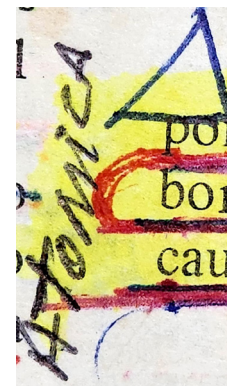 Atomics
por
bor
cau